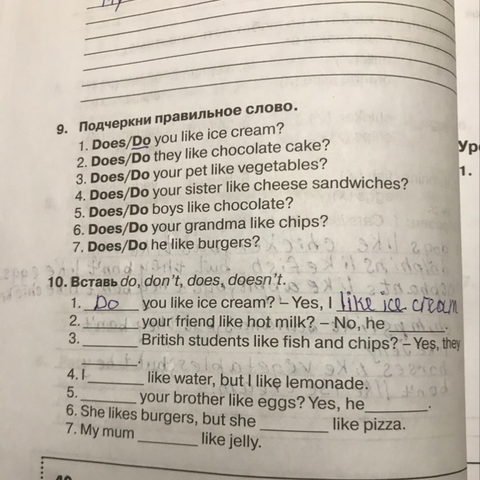 9. Подчеркни правильное слово.
1. Does/Do you like ice cream?
2. Does/Do they like chocolate cake?
3. Does/Do your pet like vegetables?
4. Does/Do your sister like cheese sandwiches?
5. Does/Do boys like chocolate?
6. Does/Do your grandma like chips?
7. Does/Do he like burgers?
10. Вставь do, don't, does, doesn't.
1. Do you like ice cream? – Yes, I like ice cream
2. ______ your friend like hot milk? – No, he ______.
3. ______ British students like fish and chips? – Yes, they
______.
4. I ______ like water, but I like lemonade.
5. ______ your brother like eggs? Yes, he ______.
6. She likes burgers, but she ______ like pizza.
7. My mum ______ like jelly.
Ур
1.